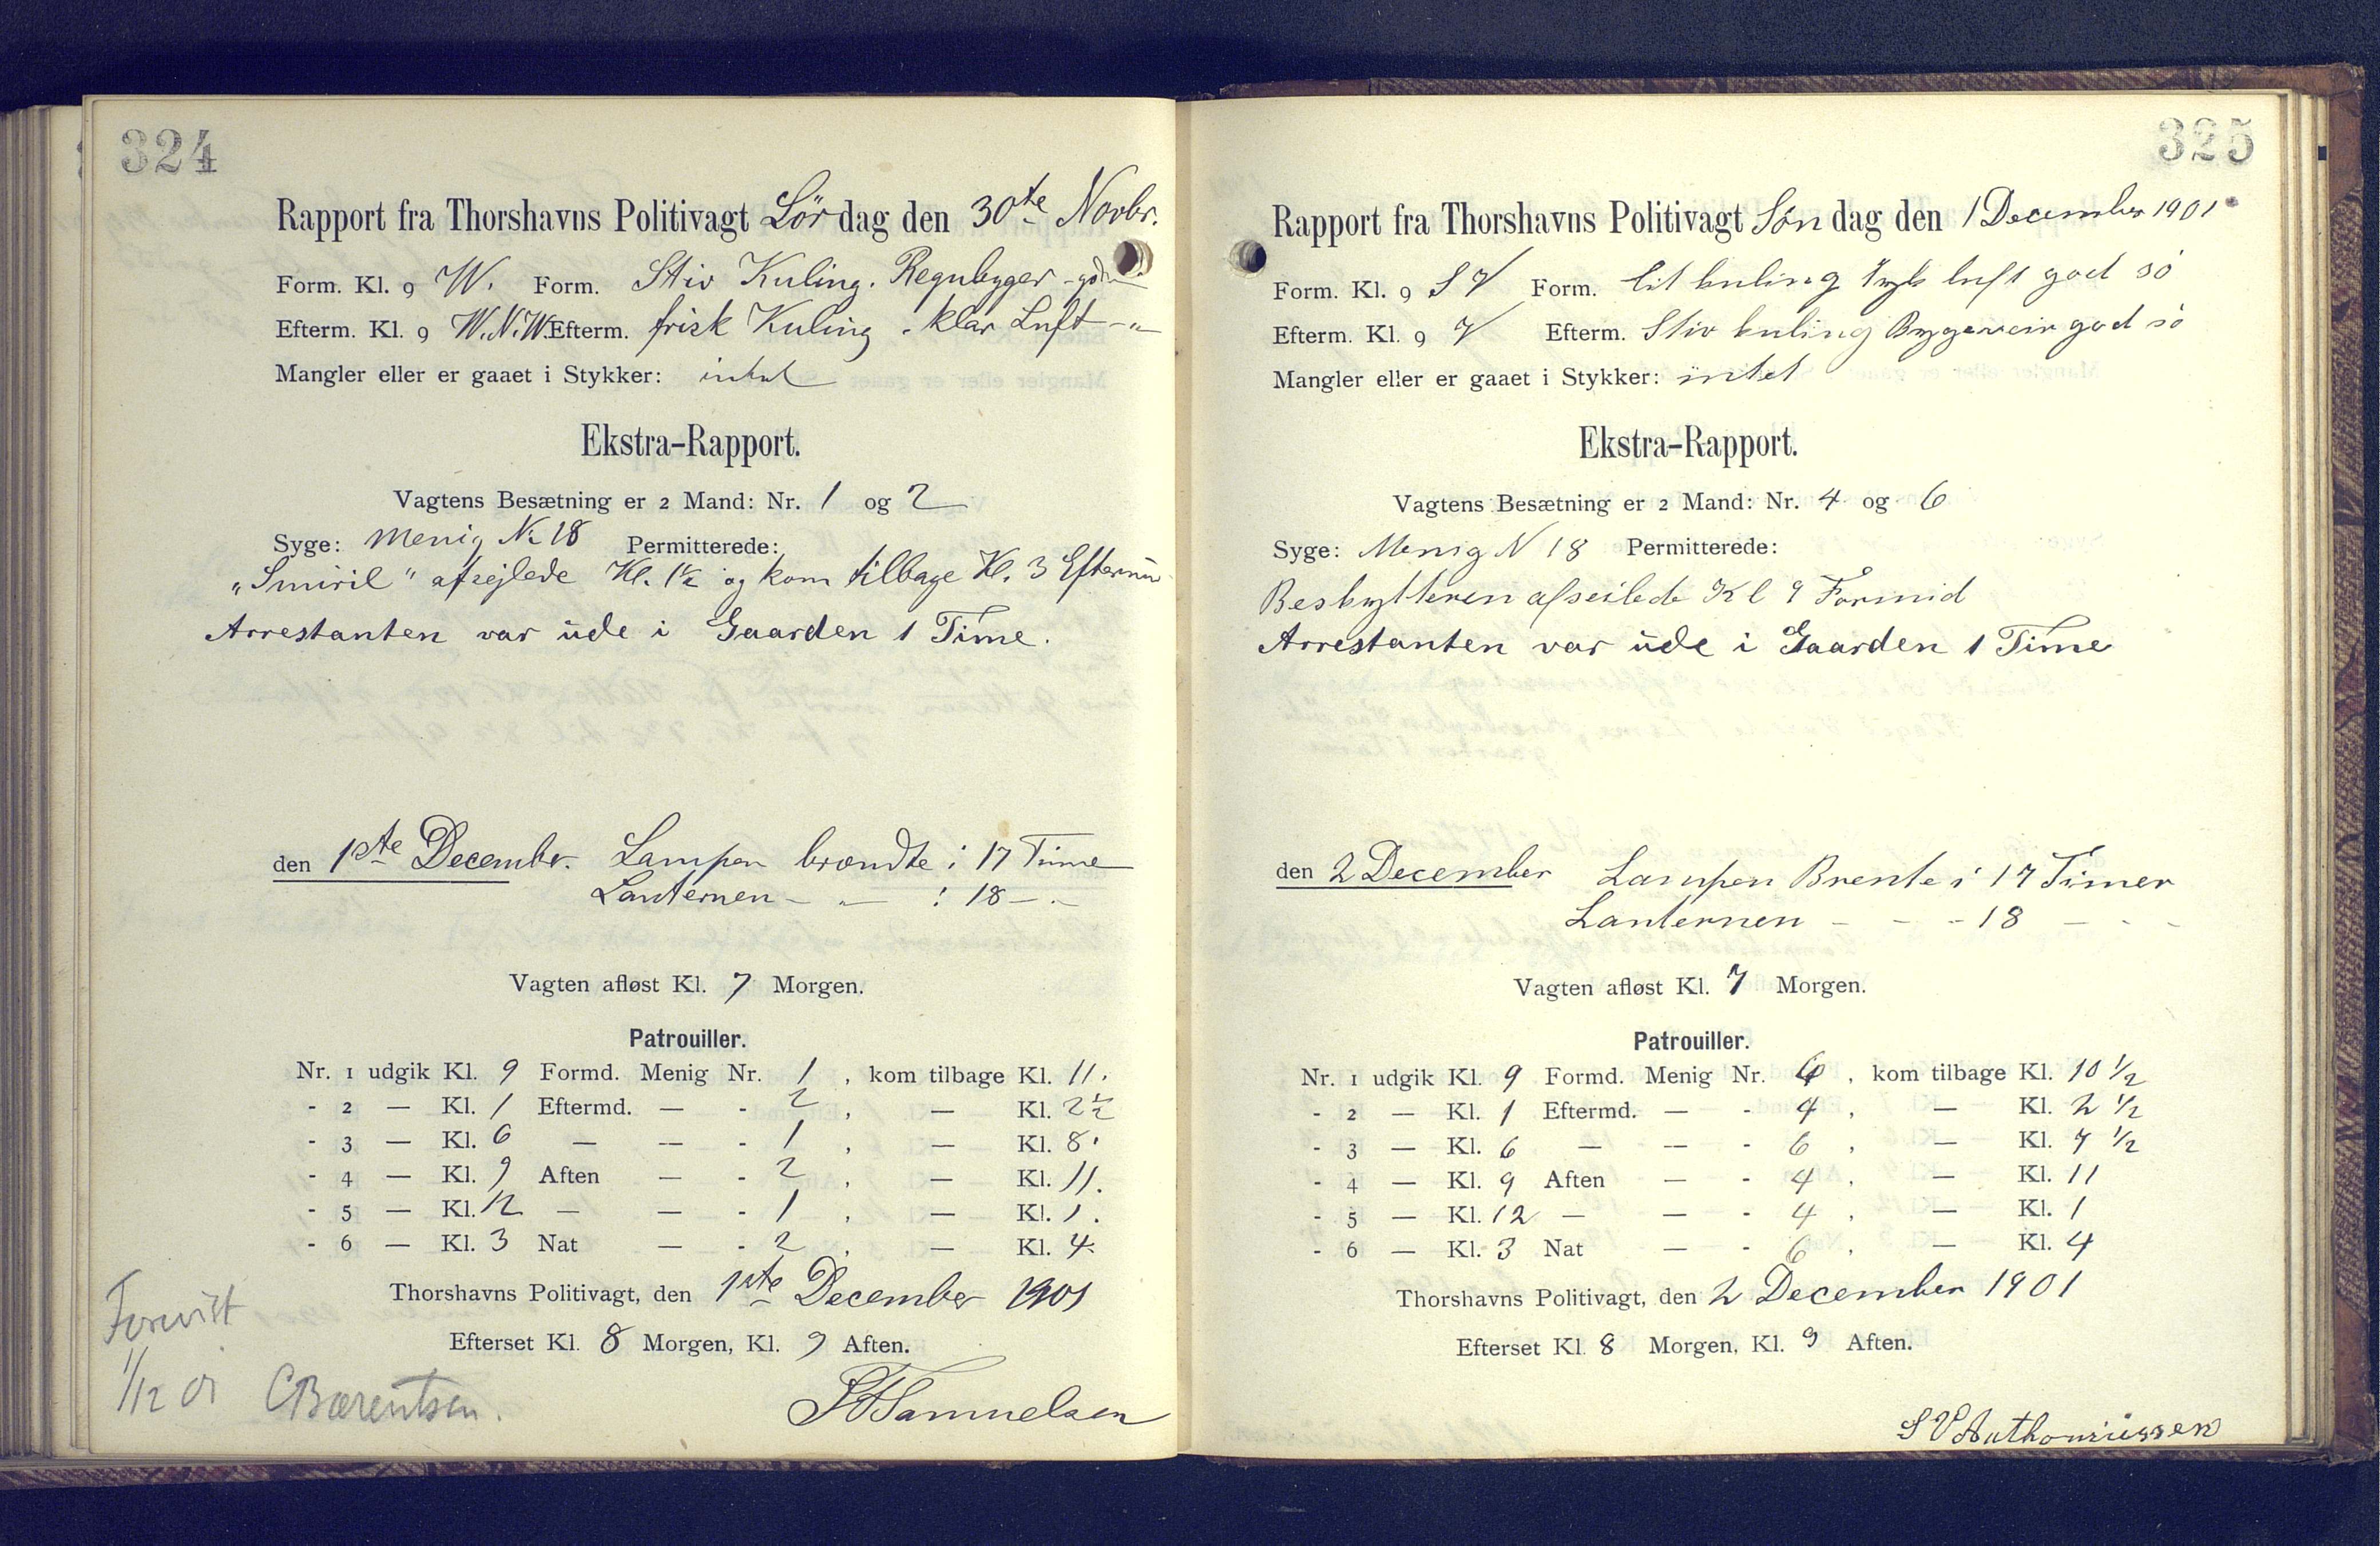 324
Rapport fra Thorshavns Politivagt Lördag den 30te Novbr.
Form. Kl. 9 W. Form. Stiv Kuling. Regnbyger -
Efterm. Kl. 9 W.N.W. Efterm. frisk Kuling. klar Luft -„-
Mangler eller er gaaet i Stykker: intet
Ekstra-Rapport.
Vagtens Besætning er 2 Mand: Nr. 1 og 2
Syge: Menig No 18 Permitterede:
„Smiril" afsejlede Kl. 1½ og kom tilbage Kl. 3 Eftermi
Arrestanten var ude i Gaarden 1 Time.
den 1ste Decembr. Lampen brændte i 17 Time
Lanternen - „ - : 18 - . -
Vagten afløst Kl. 7 Morgen.
Patrouiller.
Nr. 1 udgik Kl. 9 Formd. Menig Nr. 1, kom tilbage Kl. 11.
- 2 — Kl. 1 Eftermd. — - 2, — Kl. 2½
- 3 — Kl. 6 — — - 1, — Kl. 8.
- 4 — Kl. 9 Aften — - 2, — Kl. 11.
- 5 — Kl. 12 — — - 1, — Kl. 1.
- 6 — Kl. 3 Nat — - 2, — Kl. 4.
Thorshavns Politivagt, den 1ste December 1901
Efterset Kl. 8 Morgen, Kl. 9 Aften.
Forevist
1/12 01 CBærentsen.
Samuelsen
325
Rapport fra Thorshavns Politivagt Söndag den 1 December 1901
Form. Kl. 9 S V Form. lit kuling tyk luft god sö
Efterm. Kl. 9 V Efterm. Stiv kuling Bygeveir god sö
Mangler eller er gaaet i Stykker: intet
Ekstra-Rapport.
Vagtens Besætning er 2 Mand: Nr. 4 og 6
Syge: Menig N 18 Permitterede:
Beskytteren afseilede Kl 9 Formid
Arrestanten var ude i Gaarden 1 Time
den 2 December Lampen Brente i 17 Timer
Lanternen - - - 18 - - -
Vagten afløst Kl. 7 Morgen.
Patrouiller.
Nr. 1 udgik Kl. 9 Formd. Menig Nr. 6, kom tilbage Kl. 10 1/2
- 2 — Kl. 1 Eftermd. — - 4, — Kl. 2 1/2
- 3 — Kl. 6 — — - 6, — Kl. 7 1/2
- 4 — Kl. 9 Aften — - 4, — Kl. 11
- 5 — Kl. 12 — — - 4, — Kl. 1
- 6 — Kl. 3 Nat — - 6, — Kl. 4
Thorshavns Politivagt, den 2 December 1901
Efterset Kl. 8 Morgen, Kl. 9 Aften.
S V Anthoniussen